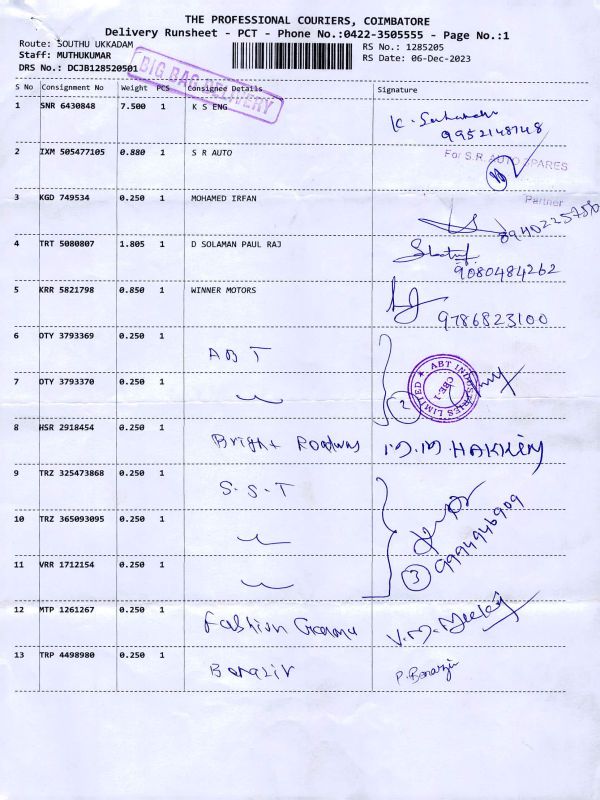 THE PROFESSIONAL COURIERS, COIMBATORE
Delivery Runsheet - PCT - Phone No.:0422-3505555 - Page No.:1
Route: SOUTHU UKKADAM
RS No.: 1285205
Staff: MUTHUKUMAR
RS Date: 06-Dec-2023
DRS No.: DCJB128520501
BIG BAG DELIVERY
S No Consignment No Weight PCS Consignee Details Signature
1 SNR 6430848 7.500 1 K S ENG
9952148748
2 IXM 505477105 0.880 1 S R AUTO
For S.R. AUTO SPARES
Partner
3 KGD 749534 0.250 1 MOHAMED IRFAN
4 TRT 5080807 1.805 1 D SOLAMAN PAUL RAJ
9080484262
5 KRR 5821798 0.850 1 WINNER MOTORS
9786823100
6 DTY 3793369 0.250 1 ABT
ABT INDUSTRIES LIMITED
CBE-1
7 DTY 3793370 0.250 1
2
8 HSR 2918454 0.250 1 Bright Roadways I.M.M.HAKKIM
9 TRZ 325473868 0.250 1 S.S.T
10 TRZ 365093095 0.250 1
9994946909
11 VRR 1712154 0.250 1
3
12 MTP 1261267 0.250 1 Fashion
13 TRP 4498980 0.250 1 Benazir P. Benazir